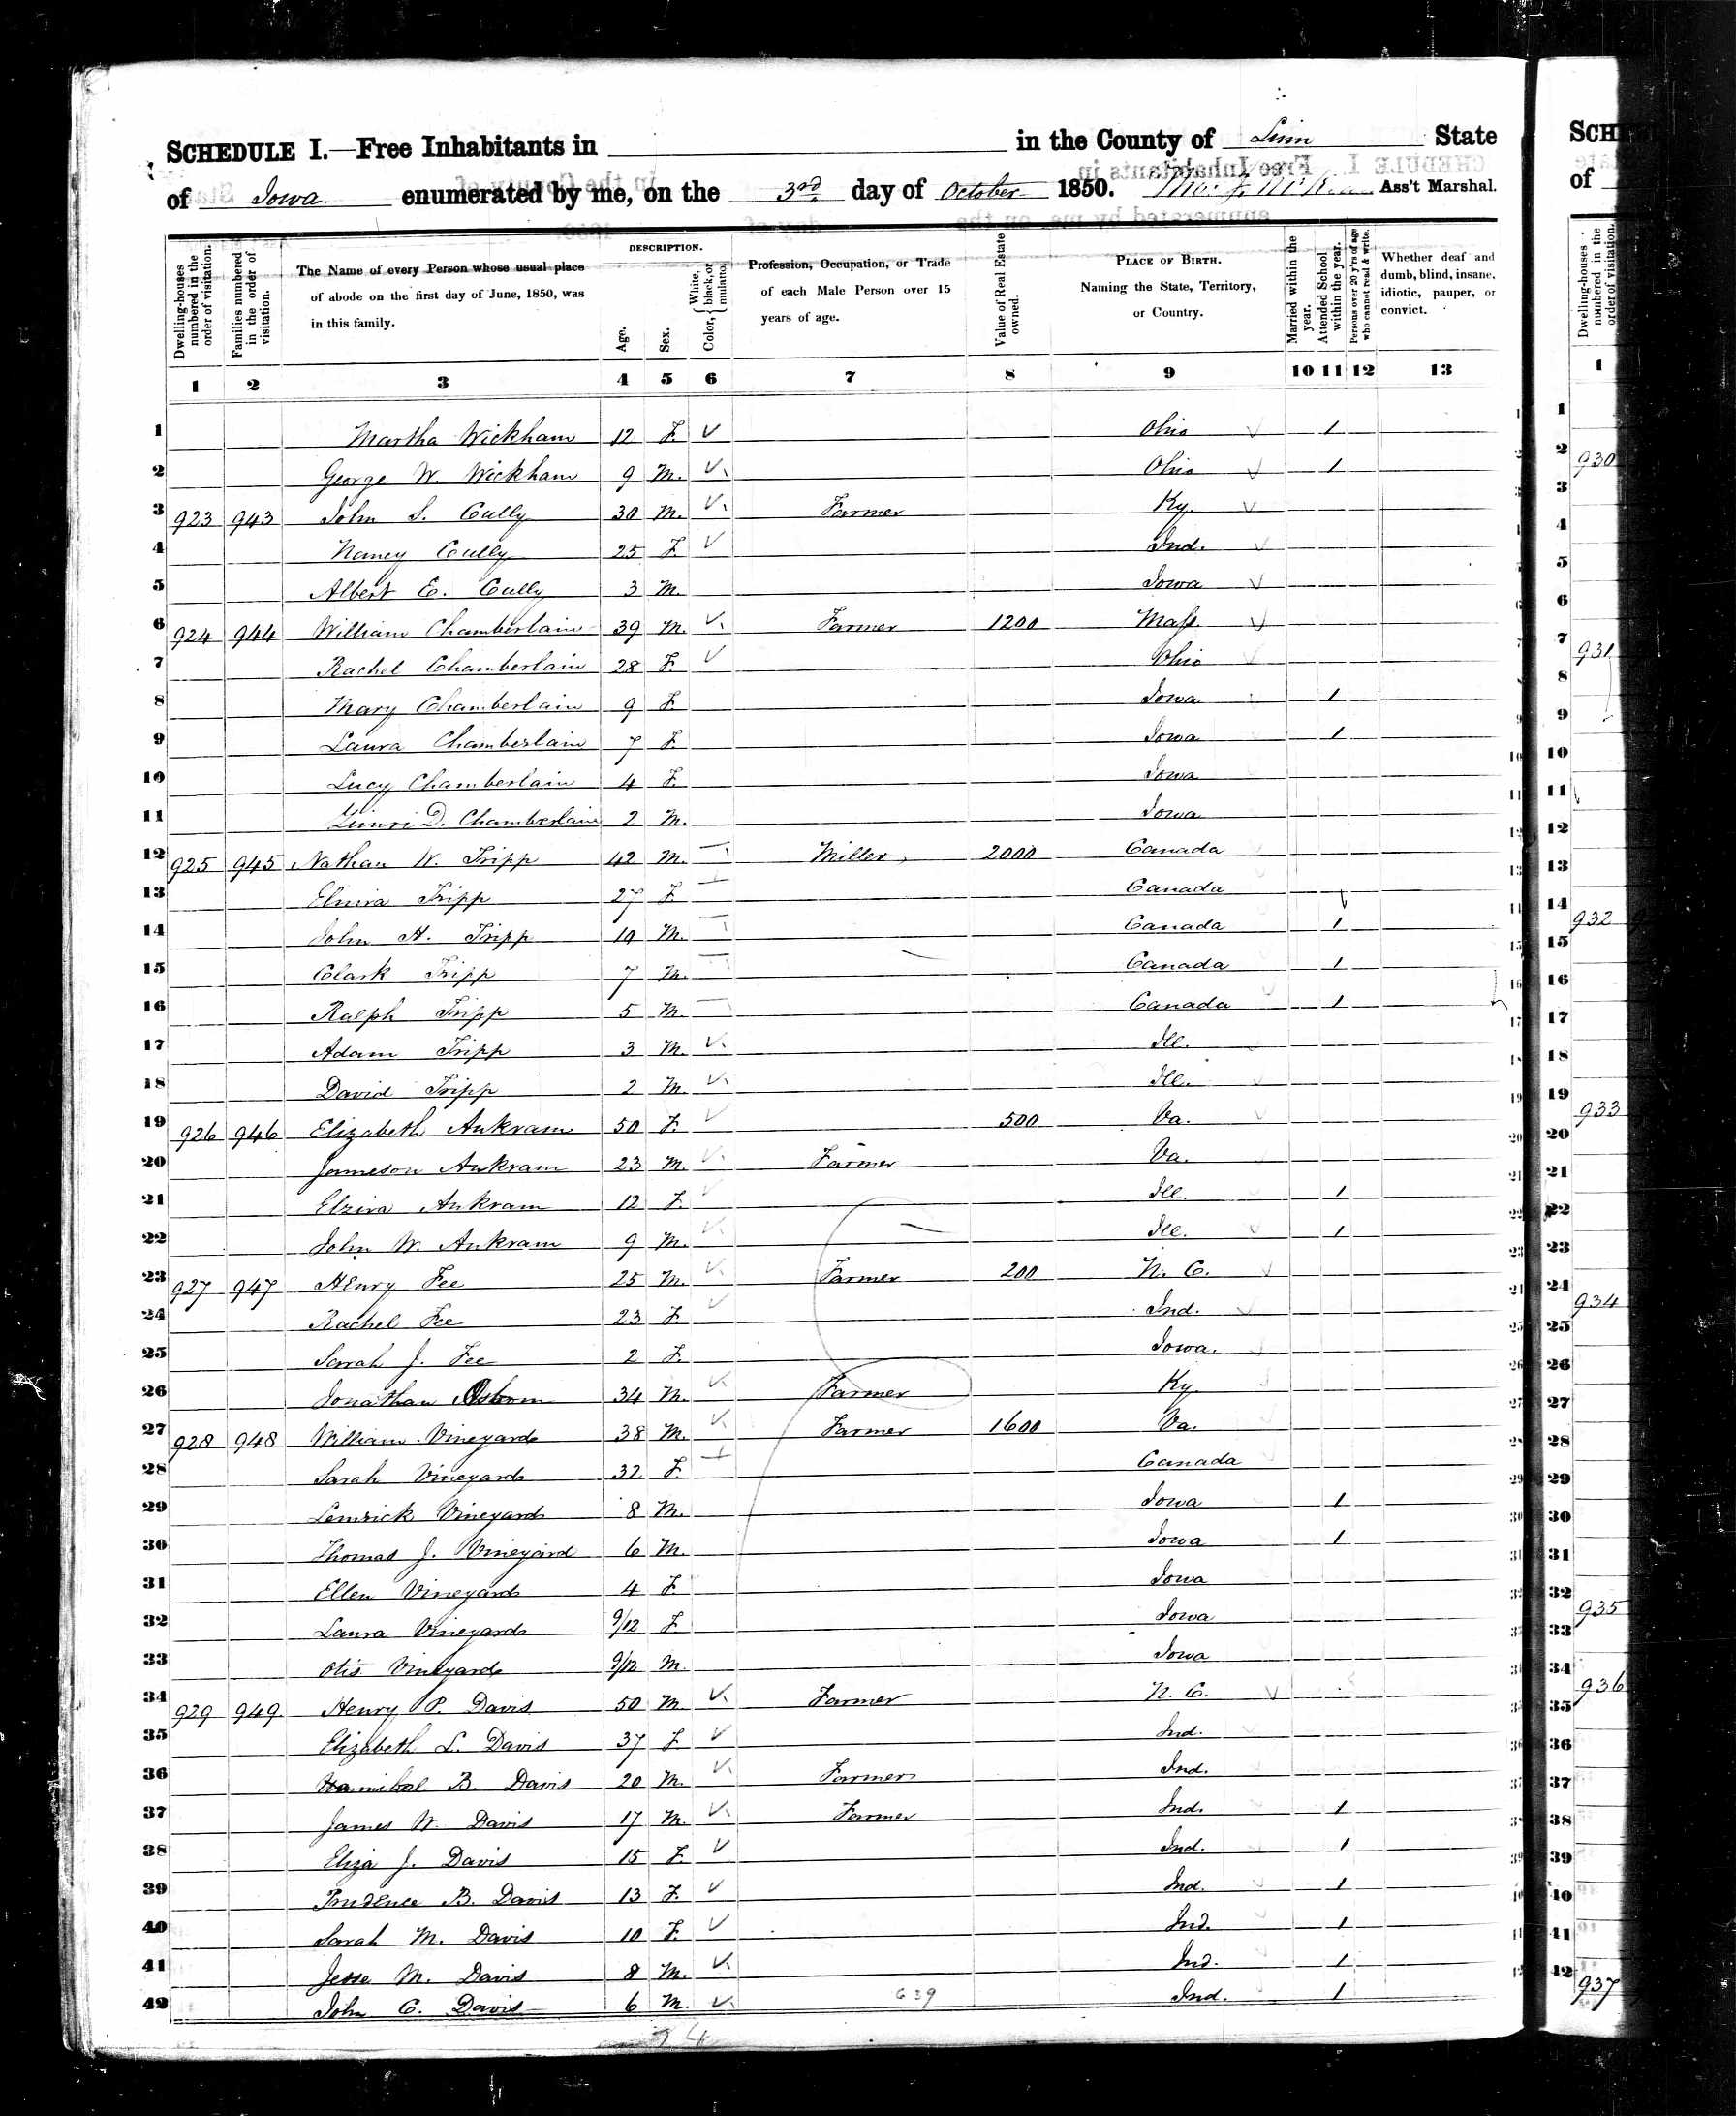 SCHEDULE I.—Free Inhabitants in in the County of Linn State
of Iowa enumerated by me, on the 3rd day of October 1850. Ass't Marshal.
Dwelling-houses numbered in the order of visitation.
Families numbered in the order of visitation.
The Name of every Person whose usual place of abode on the first day of June, 1850, was in this family.
DESCRIPTION.
Age.
Sex.
Color, { White, black, or mulatto.
Profession, Occupation, or Trade of each Male Person over 15 years of age.
Value of Real Estate owned.
PLACE OF BIRTH. Naming the State, Territory, or Country.
Married within the year.
Attended School within the year.
Persons over 20 y'rs of age who cannot read & write.
Whether deaf and dumb, blind, insane, idiotic, pauper, or convict.
1 2 3 4 5 6 7 8 9 10 11 12 13
1 Martha Wickham 12 F. Ohio 1
2 George W. Wickham 9 M. Ohio 1
3 923 943 John S. Cully 30 M. Farmer Ky.
4 Nancy Cully 25 F. Ind.
5 Albert E. Cully 3 M. Iowa
6 924 944 William Chamberlain 39 M. Farmer 1200 Mass
7 Rachel Chamberlain 28 F. Ohio
8 Mary Chamberlain 9 F. Iowa 1
9 Laura Chamberlain 7 F. Iowa 1
10 Lucy Chamberlain 4 F. Iowa
11 D. Chamberlain 2 M. Iowa
12 925 945 Nathan W. Tripp 42 M. Miller 2000 Canada
13 Elmira Tripp 27 F. Canada
14 John H. Tripp 10 M. Canada 1
15 Clark Tripp 7 M. Canada 1
16 Ralph Tripp 5 M. Canada 1
17 Adam Tripp 3 M. Ill.
18 David Tripp 2 M. Ill.
19 926 946 Elizabeth Ankram 50 F. 500 Va.
20 Jameson Ankram 23 M. Farmer Va.
21 Elzira Ankram 12 F. Ill. 1
22 John W. Ankram 9 M. Ill. 1
23 927 947 Henry Fee 25 M. Farmer 200 N. C.
24 Rachel Fee 23 F. Ind.
25 Sarah J. Fee 2 F. Iowa.
26 Jonathan Osborn 34 M. Farmer Ky.
27 928 948 William Vineyard 38 M. Farmer 1600 Va.
28 Sarah Vineyard 32 F. Canada
29 Lemrick Vineyard 8 M. Iowa 1
30 Thomas J. Vineyard 6 M. Iowa 1
31 Ellen Vineyard 4 F. Iowa
32 Laura Vineyard 9/12 F. Iowa
33 Otis Vineyard 9/12 M. Iowa
34 929 949 Henry P. Davis 50 M. Farmer N. C.
35 Elizabeth L. Davis 37 F. Ind.
36 Hannibal B. Davis 20 M. Farmer Ind.
37 James W. Davis 17 M. Farmer Ind. 1
38 Eliza J. Davis 15 F. Ind. 1
39 Prudence B. Davis 13 F. Ind. 1
40 Sarah M. Davis 10 F. Ind. 1
41 Jesse M. Davis 8 M. Ind. 1
42 John C. Davis 6 M. 639 Ind. 1
SCH
of
Dwelling-houses numbered in the order of visitation.
1
1
2 930
3
4
5
6
7 931
8
9
10
11
12
13
14 932
15
16
17
18
19 933
20
21
22
23
24 934
25
26
27
28
29
30
31
32 935
33
34 936
35
36
37
38
39
40
41
42 937